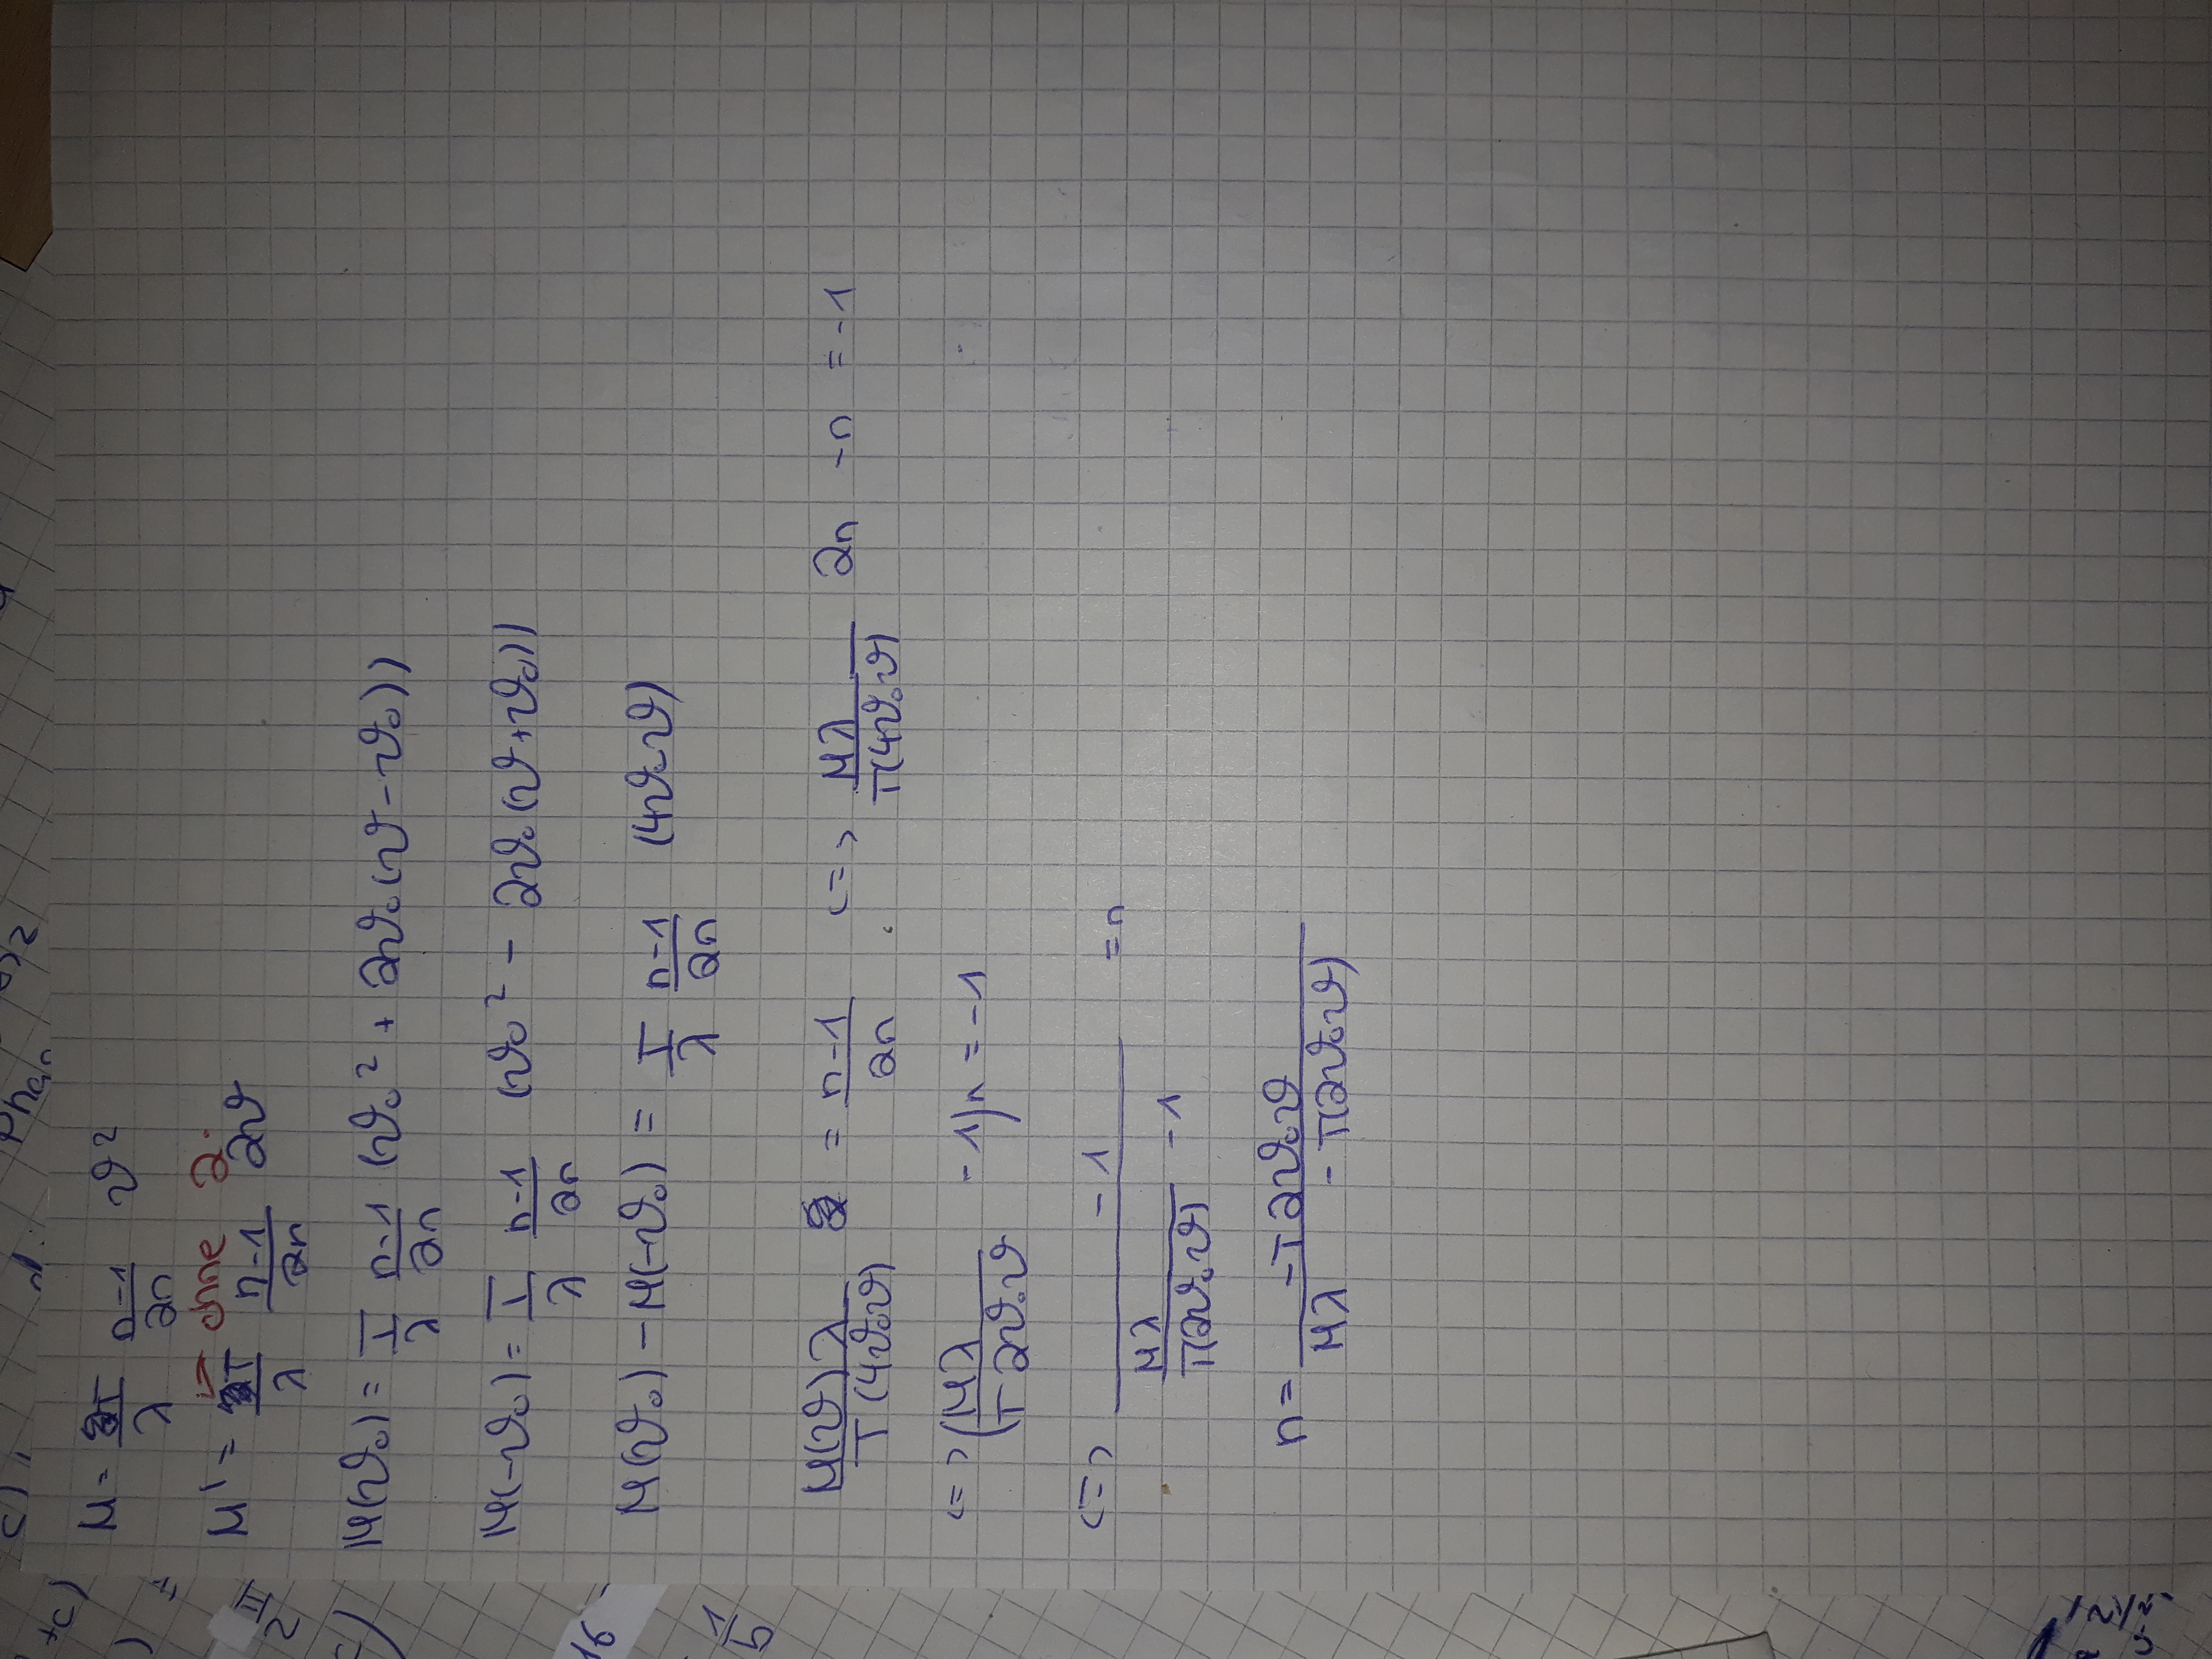 c)
Phan
2
+c)
)
=
M = T/λ (n-1)/2n ϑ²
← ohne 2.
M' = T/λ (n-1)/2n 2ϑ
M(ϑ₀) = T/λ (n-1)/2n (ϑ₀² + 2ϑ₀(ϑ-ϑ₀))
M(-ϑ₀) = T/λ (n-1)/2n (ϑ₀² - 2ϑ₀(ϑ+ϑ₀))
16
M(ϑ₀) - M(-ϑ₀) = T/λ (n-1)/2n (4ϑ₀ϑ)
1/5
M(ϑ)λ / T(4ϑ₀ϑ) = (n-1)/2n <=> Mλ / T(4ϑ₀ϑ) 2n - n = -1
<=> (Mλ / T2ϑ₀ϑ - 1)n = -1
<=> -1 / (Mλ / T(2ϑ₀ϑ) - 1) = n
n = -T2ϑ₀ϑ / (Mλ - T(2ϑ₀ϑ))